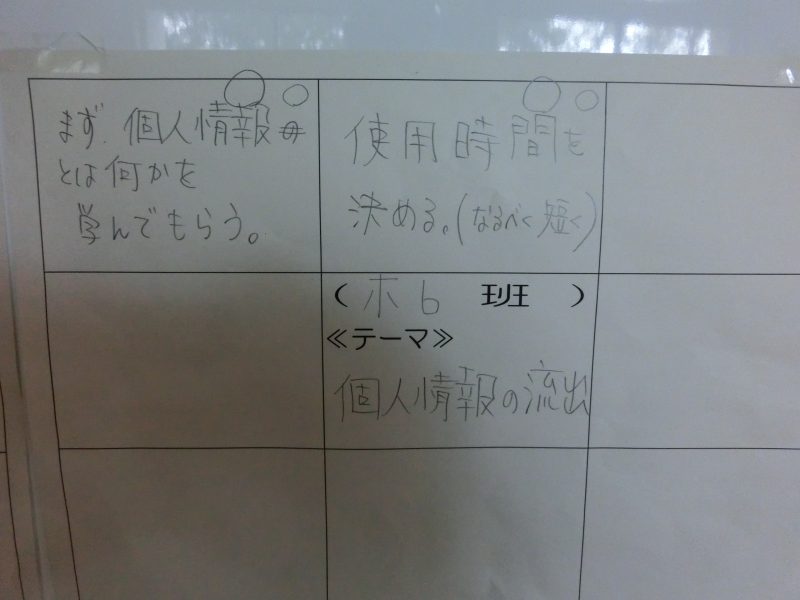 まず、個人情報
とは何かを
学んでもらう。
使用時間を
決める。(なるべく短く)
( ホ6 班 )
≪テーマ≫
個人情報の流出